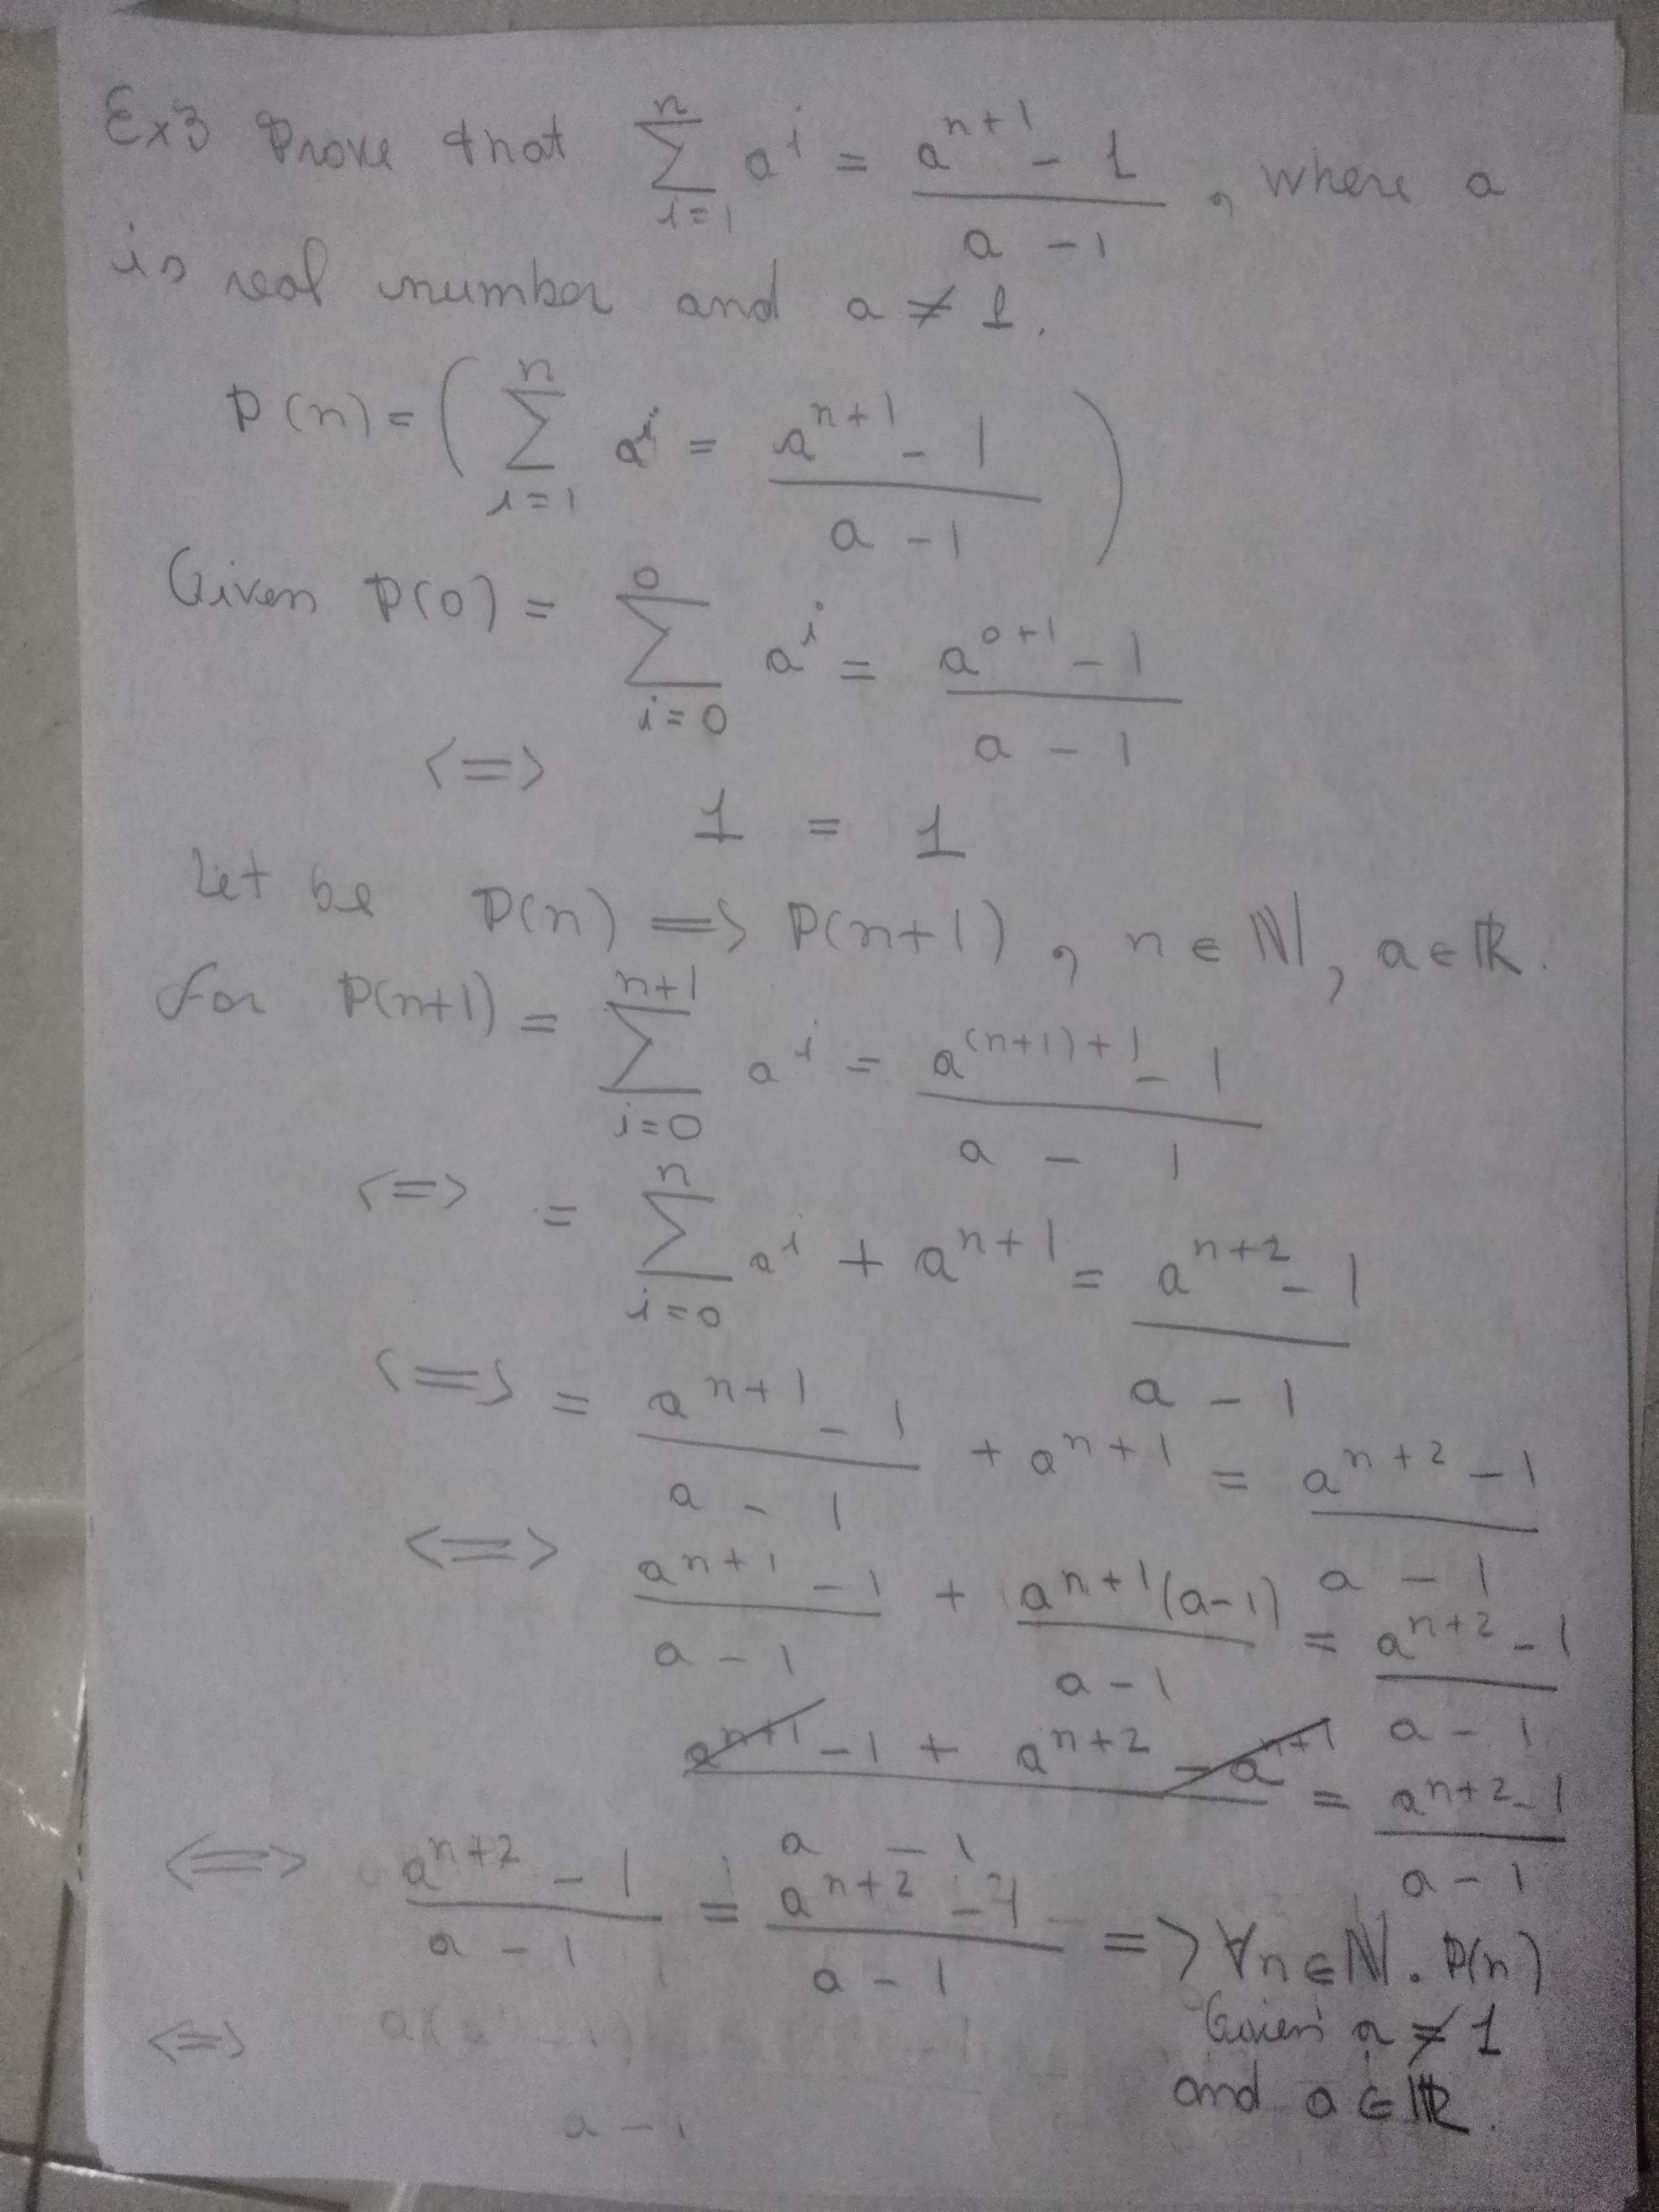 Ex3 Prove that ∑_{i=1}^{n} a^i = (a^{n+1} - 1)/(a - 1), where a
is real number and a ≠ 1.
P(n) = ( ∑_{i=1}^{n} a^i = (a^{n+1} - 1)/(a - 1) )
Given P(0) = ∑_{i=0}^{0} a^i = (a^{0+1} - 1)/(a - 1)
<=> 1 = 1
Let be P(n) => P(n+1), n ∈ ℕ, a ∈ ℝ.
For P(n+1) = ∑_{i=0}^{n+1} a^i = (a^{(n+1)+1} - 1)/(a - 1)
<=> = ∑_{i=0}^{n} a^i + a^{n+1} = (a^{n+2} - 1)/(a - 1)
<=> = (a^{n+1} - 1)/(a - 1) + a^{n+1} = (a^{n+2} - 1)/(a - 1)
<=> (a^{n+1} - 1)/(a - 1) + (a^{n+1}(a-1))/(a - 1) = (a^{n+2} - 1)/(a - 1)
(a^{n+1} - 1 + a^{n+2} - a^{n+1})/(a - 1) = (a^{n+2} - 1)/(a - 1)
<=> (a^{n+2} - 1)/(a - 1) = (a^{n+2} - 1)/(a - 1) => ∀n ∈ ℕ. P(n)
Given a ≠ 1
and a ∈ ℝ.
<=>